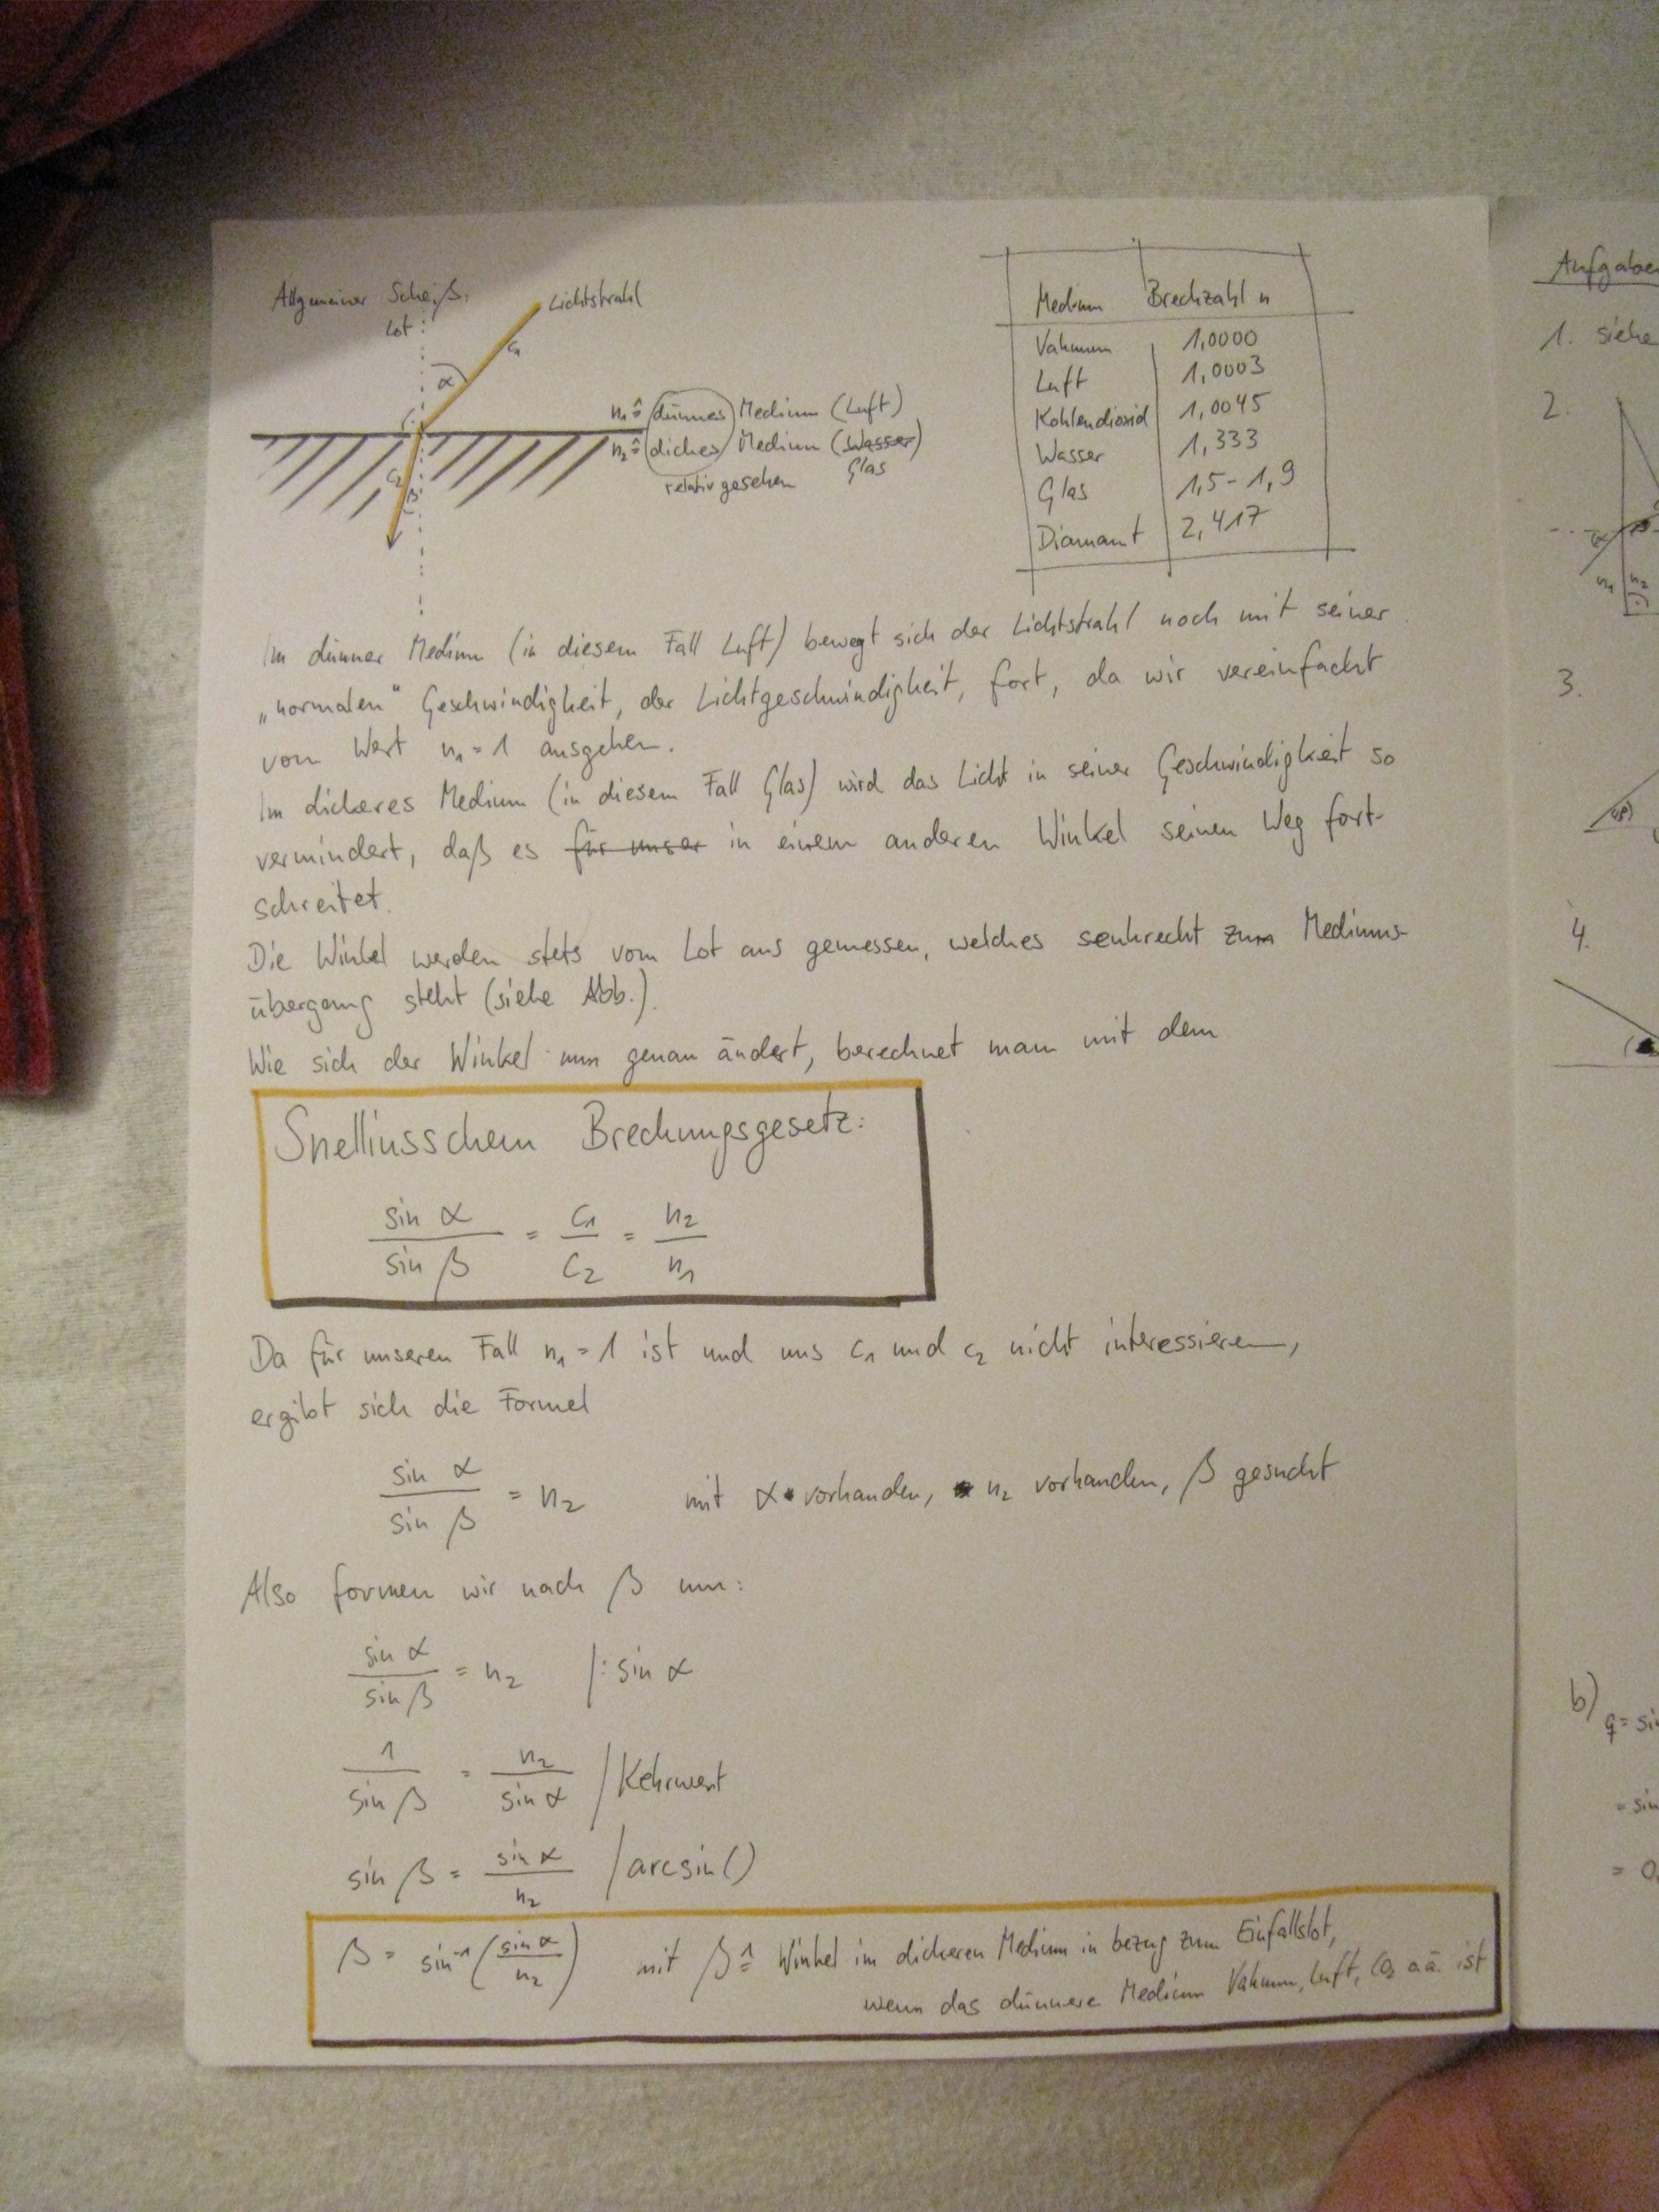 Allgemeiner Scheiß:
Lot:
Lichtstrahl
c₁
α
n₁ ≙ dünnes Medium (Luft)
n₂ ≙ dickes Medium (Wasser)
Glas
relativ gesehen
c₂
β
Medium Brechzahl n
Vakuum 1,0000
Luft 1,0003
Kohlendioxid 1,0045
Wasser 1,333
Glas 1,5-1,9
Diamant 2,417
Im dünner Medium (in diesem Fall Luft) bewegt sich der Lichtstrahl noch mit seiner
„normalen“ Geschwindigkeit, der Lichtgeschwindigkeit, fort, da wir vereinfacht
vom Wert n₁ = 1 ausgehen.
Im dickeres Medium (in diesem Fall Glas) wird das Licht in seiner Geschwindigkeit so
vermindert, daß es für unser in einem anderen Winkel seinen Weg fort-
schreitet.
Die Winkel werden stets vom Lot aus gemessen, welches senkrecht zum Mediums-
übergang steht (siehe Abb.).
Wie sich der Winkel nun genau ändert, berechnet man mit dem
Snelliusschem Brechungsgesetz:
sin α / sin β = c₁ / c₂ = n₂ / n₁
Da für unseren Fall n₁ = 1 ist und uns c₁ und c₂ nicht interessieren,
ergibt sich die Formel
sin α / sin β = n₂ mit α vorhanden, n₂ vorhanden, β gesucht
Also formen wir nach β um:
sin α / sin β = n₂ |: sin α
1 / sin β = n₂ / sin α | Kehrwert
sin β = sin α / n₂ | arcsin()
β = sin⁻¹(sin α / n₂) mit β ≙ Winkel im dickeren Medium in bezug zum Einfallslot,
wenn das dünnere Medium Vakuum, Luft, CO₂ o.ä. ist
Aufgabe
1. siehe
2.
α
n₁ n₂
3.
4.
b) q = si
= sin
= 0,